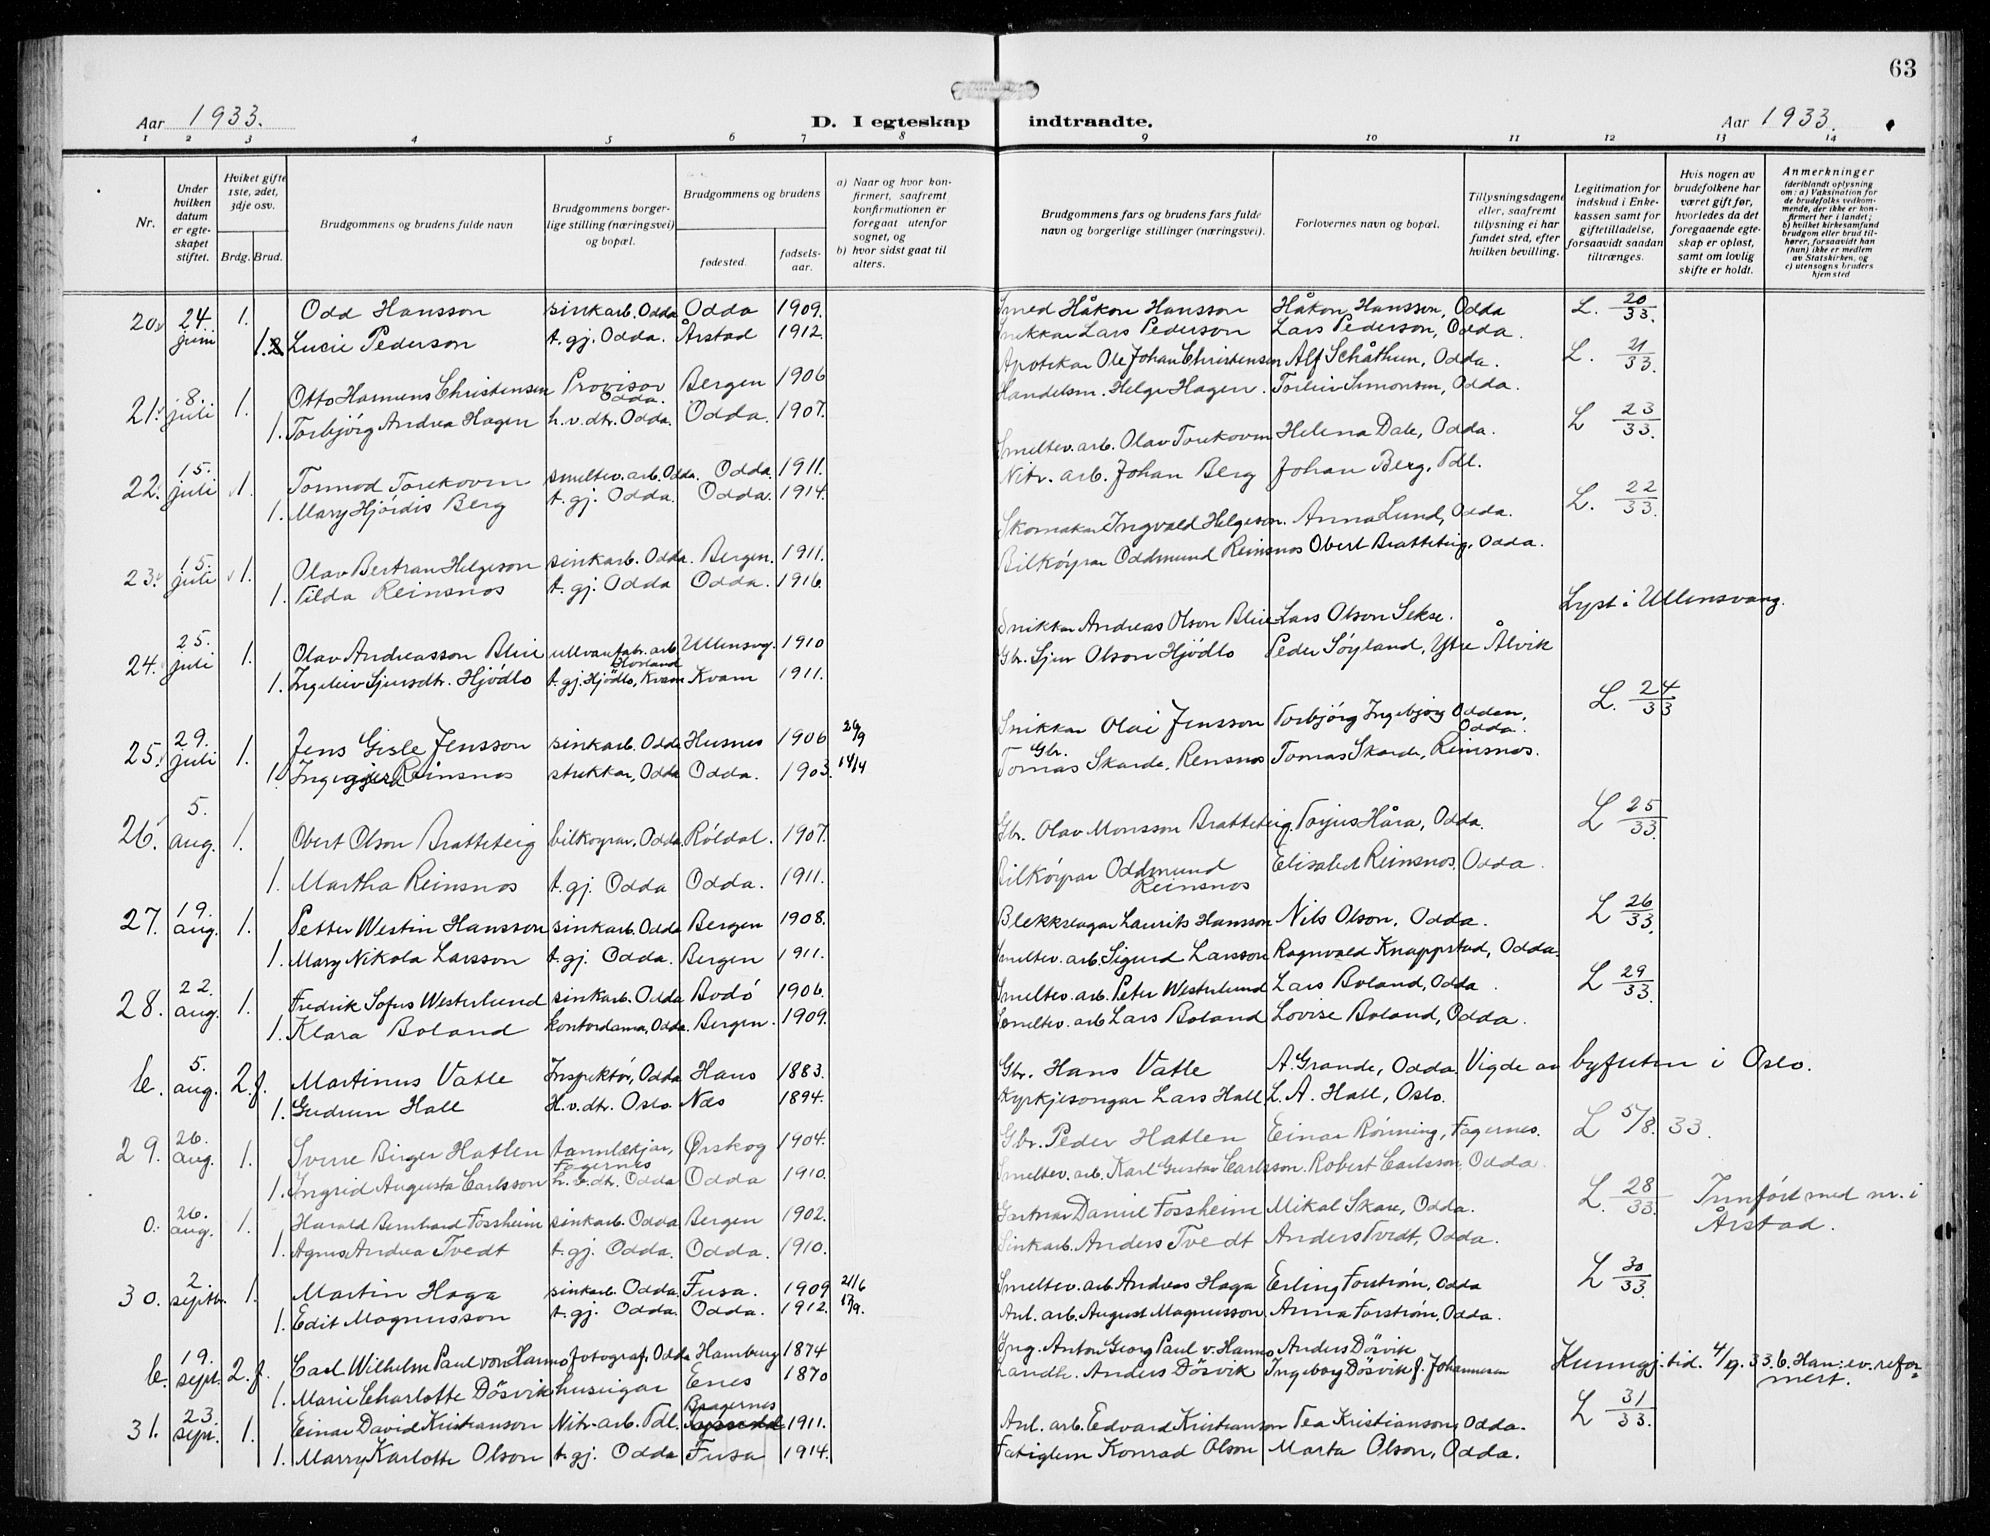 63
Aar 1933.
D. I egteskap indtraadte.
Aar 1933.
1 2 3 4 5 6 7 8 9 10 11 12 13 14
Nr.
Under hvilken datum er egteskapet stiftet.
Hviket gifte 1ste, 2det, 3dje osv.
Brdg. Brud.
Brudgommens og brudens fulde navn
Brudgommens borgerlige stilling (næringsvei) og bopæl.
Brudgommens og brudens
fødested.
fødselsaar.
a) Naar og hvor konfirmert, saafremt konfirmationen er foregaat utenfor sognet, og
b) hvor sidst gaat til alters.
Brudgommens fars og brudens fars fulde navn og borgerlige stillinger (næringsvei).
Forlovernes navn og bopæl.
Tillysningsdagene eller, saafremt tillysning ei har fundet sted, efter hvilken bevilling.
Legitimation for indskud i Enkekassen samt for giftetilladelse, forsaavidt saadan tiltrænges.
Hvis nogen av brudefolkene har været gift før, hvorledes da det foregaaende egteskap er opløst, samt om lovlig skifte er holdt.
Anmerkninger (deriblandt oplysning om: a) Vaksination for de brudefolks vedkommende, der ikke er konfirmert her i landet; b) hvilket kirkesamfund brudgom eller brud tilhører, forsaavidt han (hun) ikke er medlem av Statskirken, og c) utensogns bruders hjemsted
20. 24. juni 1. Odd Hansson sinkarb. Odda Odda 1909. Smed Håkon Hansson Håkon Hansson, Odda L. 20/33.
1. Lucie Pederson t. gj. Odda. Årstad 1912. Snikkar Lars Pederson Lars Pederson, Odda.
21. 8. juli 1. Otto Hannens Christensen Provisor Odda. Bergen 1906 Apotekar Ole Johan Christensen Alf Schåthun, Odda. L. 21/33.
1. Torbjörg Andrea Hagen h.v.dtr. Odda. Odda. 1907. Handelsm. Helge Hagen. Torleiv Simonsen, Odda.
22. 15. juli 1. Tormod Torekoven smeltev. arb. Odda. Odda 1911. Smeltev. arb. Olav Torekoven Helena Dale, Odda. L 23/33.
1. Mary Hjördis Berg t. gj. Odda. Odda. 1914. Nitr. arb. Johan Berg Johan Berg, Tdl.
23. 15. juli 1. Olav Bertran Helgeson sinkarb. Odda. Bergen. 1911. Skomakar Ingvald Helgeson. Anna Lund, Odda. L. 22/33.
1. Tilda Reinsnos t. gj. Odda Odda. 1916. Bilköyrar Oddmund Reinsnos Obert Bratteteig, Odda.
24. 25. juli 1. Olav Andreasson Bleie ullvarefabr. arb. Ullensvg. 1910 Snikkar Andreas Olson Bleie Lars Olson Sekse. Lyst i Ullensvang.
1. Ingeleiv Sjursdtr. Hjödlo t. gj. Hjödlo, Kvam Kvam 1911. Gbr. Sjur Olson Hjödlo Peder Söyland, Ytre Ålvik
25. 29. juli 1. Jens Gisle Jensson sinkarb. Odda Husnes 1906 26/9 Snikkar Olai Jensson Torbjörg Ingebjörg Odden, Odda. L. 24/33
1. Ingegjerd Reinsnos strikkar, Odda Odda. 1903. 14/4 Gbr. Tomas Skarde, Rensnos Tomas Skarde, Reinsnos.
26. 5. aug. 1. Obert Olson Bratteteig bilkoyrar, Odda Röldal. 1907. Gbr. Olav Monsson Bratteteig Torjus Håra, Odda. L 25/33.
1. Martha Reinsnos t. gj. Odda Odda. 1911. Bilköyrar Oddmund Reinsnos Elisabet Reinsnos, Odda.
27. 19. aug. 1. Petter Westin Hansson sinkarb. Odda Bergen 1908. Blekkslagar Laurits Hansson Nils Olson, Odda. L 26/33.
1. Mary Nikola Larsson t. gj. Odda. Bergen 1911. Smeltev. arb. Sigurd Larsson Ragnvald Knappstad, Odda.
28. 22. aug. 1. Fredrik Sofus Westerlund sinkarb. Odda Bodö 1906. Smeltev. arb. Peter Westerlund Lars Boland, Odda. L 29/33.
1. Klara Boland kontordama, Odda. Bergen. 1909. Smeltev. arb. Lars Boland Lovise Boland, Odda.
b. 5. aug. 2. f. Martinus Vatle Inspektör, Odda Haus 1883. Gbr. Hans Vatle A. Grande, Odda. Vigde av byfuten i Oslo.
1. Gudrun Hall H.v.dtr. Oslo. Næs 1894. Kyrkjesongar Lars Hall L. A. Hall, Oslo.
29. 26. aug. 1. Sverre Birger Hatlen tannlækjar, Fagernes Ørskog 1904. Gbr. Peder Hatlen Einar Rönning, Fagernes. L 5/8. 33.
1. Ingrid Augusta Carlsson h.v.dtr. Odda Odda 1910. Smeltev. arb. Karl Gustav Carlsson. Robert Carlsson, Odda.
0. 26. aug. 1. Harald Bernhard Fossheim sinkarb. Odda Bergen 1902. Gartnar Daniel Fossheim Mikal Skare, Odda. L. 28/33. Innfört med nr. i Årstad.
1. Agnes Andrea Tvedt t. gj. Odda. Odda. 1910. Sinkarb. Anders Tvedt Anders Tvedt, Odda.
30. 2. septbr. 1. Martin Haga sinkarb. Odda. Fusa. 1909 21/6 Smeltev. arb. Andreas Haga Erling Forström, Odda L 30/33.
1. Edit Magnusson t. gj. Odda. Odda. 1912. 17/9. Anl. arb. August Magnusson Anna Forström, Odda.
b. 19. sept. 2. f. Carl Wilhelm Paul von Hanno fotograf, Odda Hamburg 1874 Ing. Anton Georg Paul v. Hanno Anders Dösvik Kunngj. tid. 4/9. 33. b. Han: ev. reformert.
1. Marie Charlotte Dösvik huseigar Enes 1870 Landh. Anders Dösvik Ingeborg Dösvik f. Johannesen
31. 23. sept. 1. Einar David Kristianson Nitr. arb. Tdl. Bragernes 1911. Anl. arb. Edvard Kristianson Tea Kristianson, Odda. L 31/33.
1. Marry Karlotte Olson t. gj. Odda Fusa 1914. Konrad Olson Marta Olson, Odda.